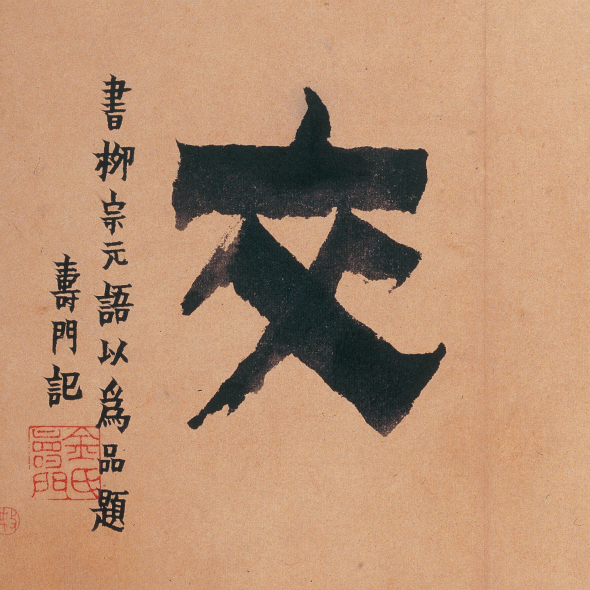 交
書柳宗元語以爲品題
壽門記
金氏
壽門